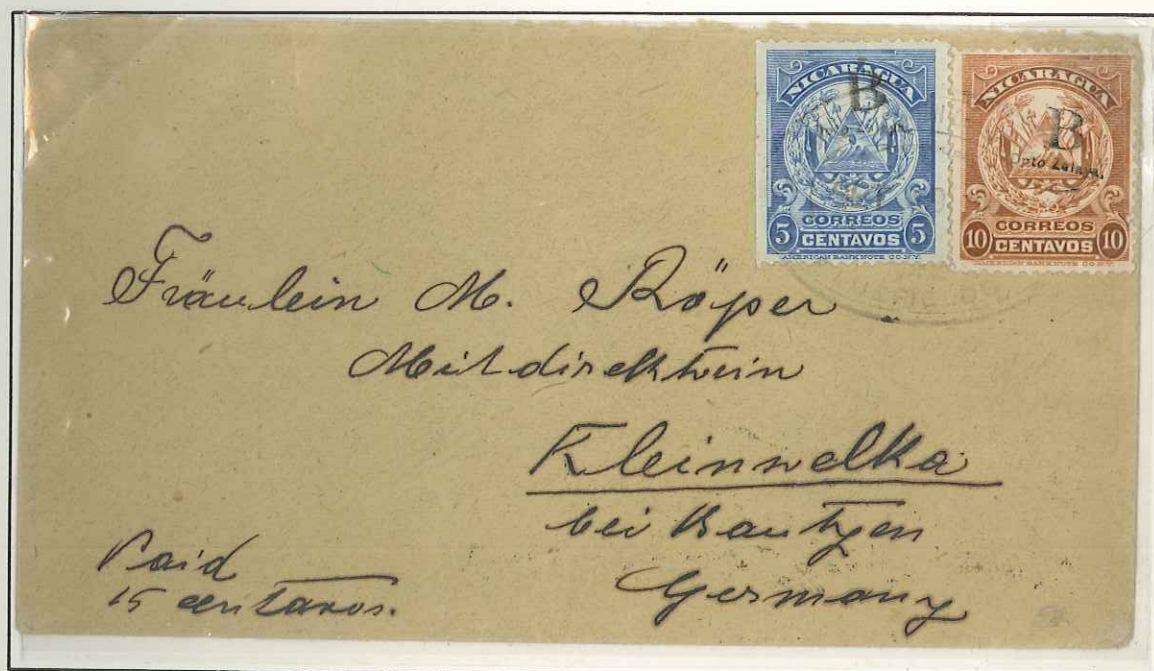 NICARAGUA
B
CORREOS
5 CENTAVOS 5
AMERICAN BANK NOTE CO. N.Y.
NICARAGUA
B
Dpto Zelaya.
CORREOS
10 CENTAVOS 10
AMERICAN BANK NOTE CO. N.Y.
Fräulein M. Röper
Mitdirektorin
Kleinwelka
bei Bautzen
Germany
Paid
15 centavos.